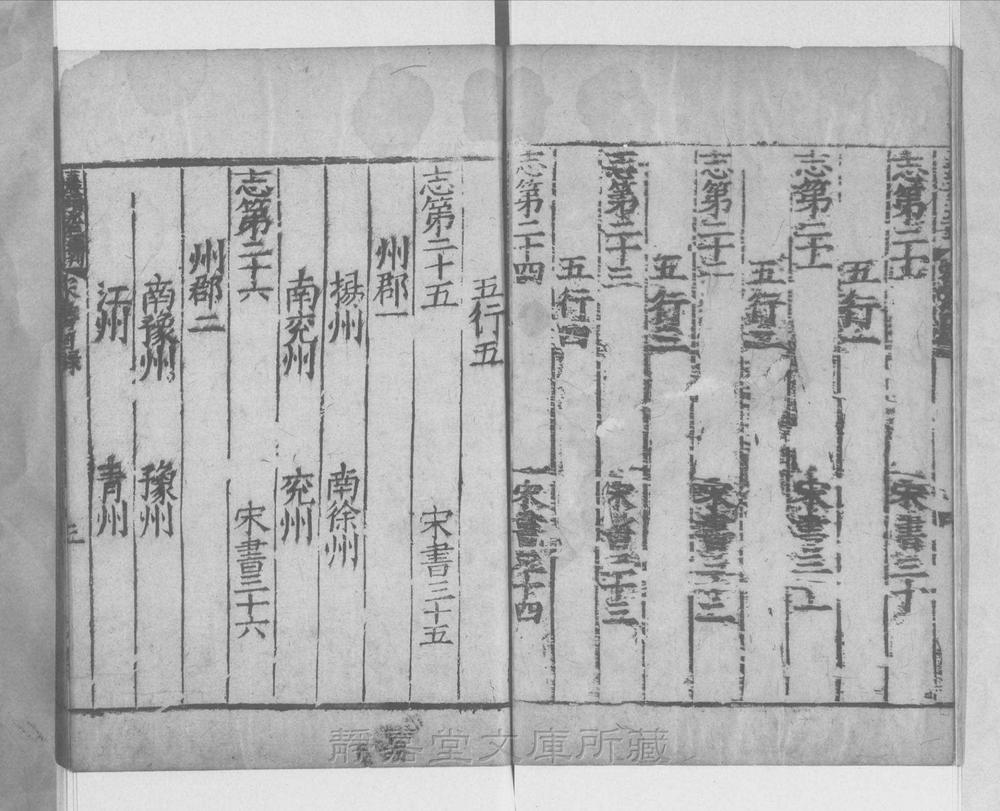 志第二十　宋書三十
五行一
志第二十一　宋書三十一
五行二
志第二十二　宋書三十二
五行三
志第二十三　宋書三十三
五行四
志第二十四　宋書三十四
五行五
志第二十五　宋書三十五
州郡一
揚州　南徐州
南兖州　兖州
志第二十六　宋書三十六
州郡二
南豫州　豫州
江州　青州
三
靜嘉堂文庫所藏